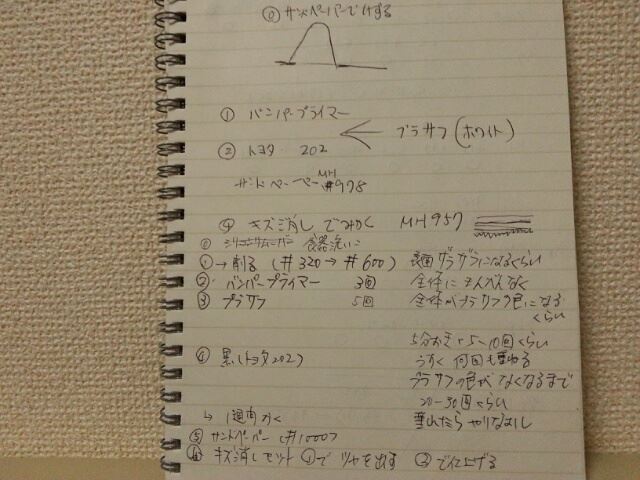 ⓪ サンドペーパーでけずる
① バンパープライマー
プラサフ(ホワイト)
② トヨタ 202
サンドペーパー MH #978
④ キズ消し でみがく MH 957
⓪ 食器洗いに
① → 削る (#320 → #600) 表面ザラザラになるくらい
② バンパープライマー 3回 全体にまんべんなく
③ プラサフ 5回 全体がプラサフの色になる
くらい
5分おき + 5-10回くらい
④ 黒(トヨタ202) うすく 何回も重ねる
プラサフの色がなくなるまで
20-30回くらい
↳ 1週間かく 垂れたらやりなおし
⑤ サンドペーパー (#1000)
⑥ キズ消しセット ①で ツヤを出す ②で仕上げる